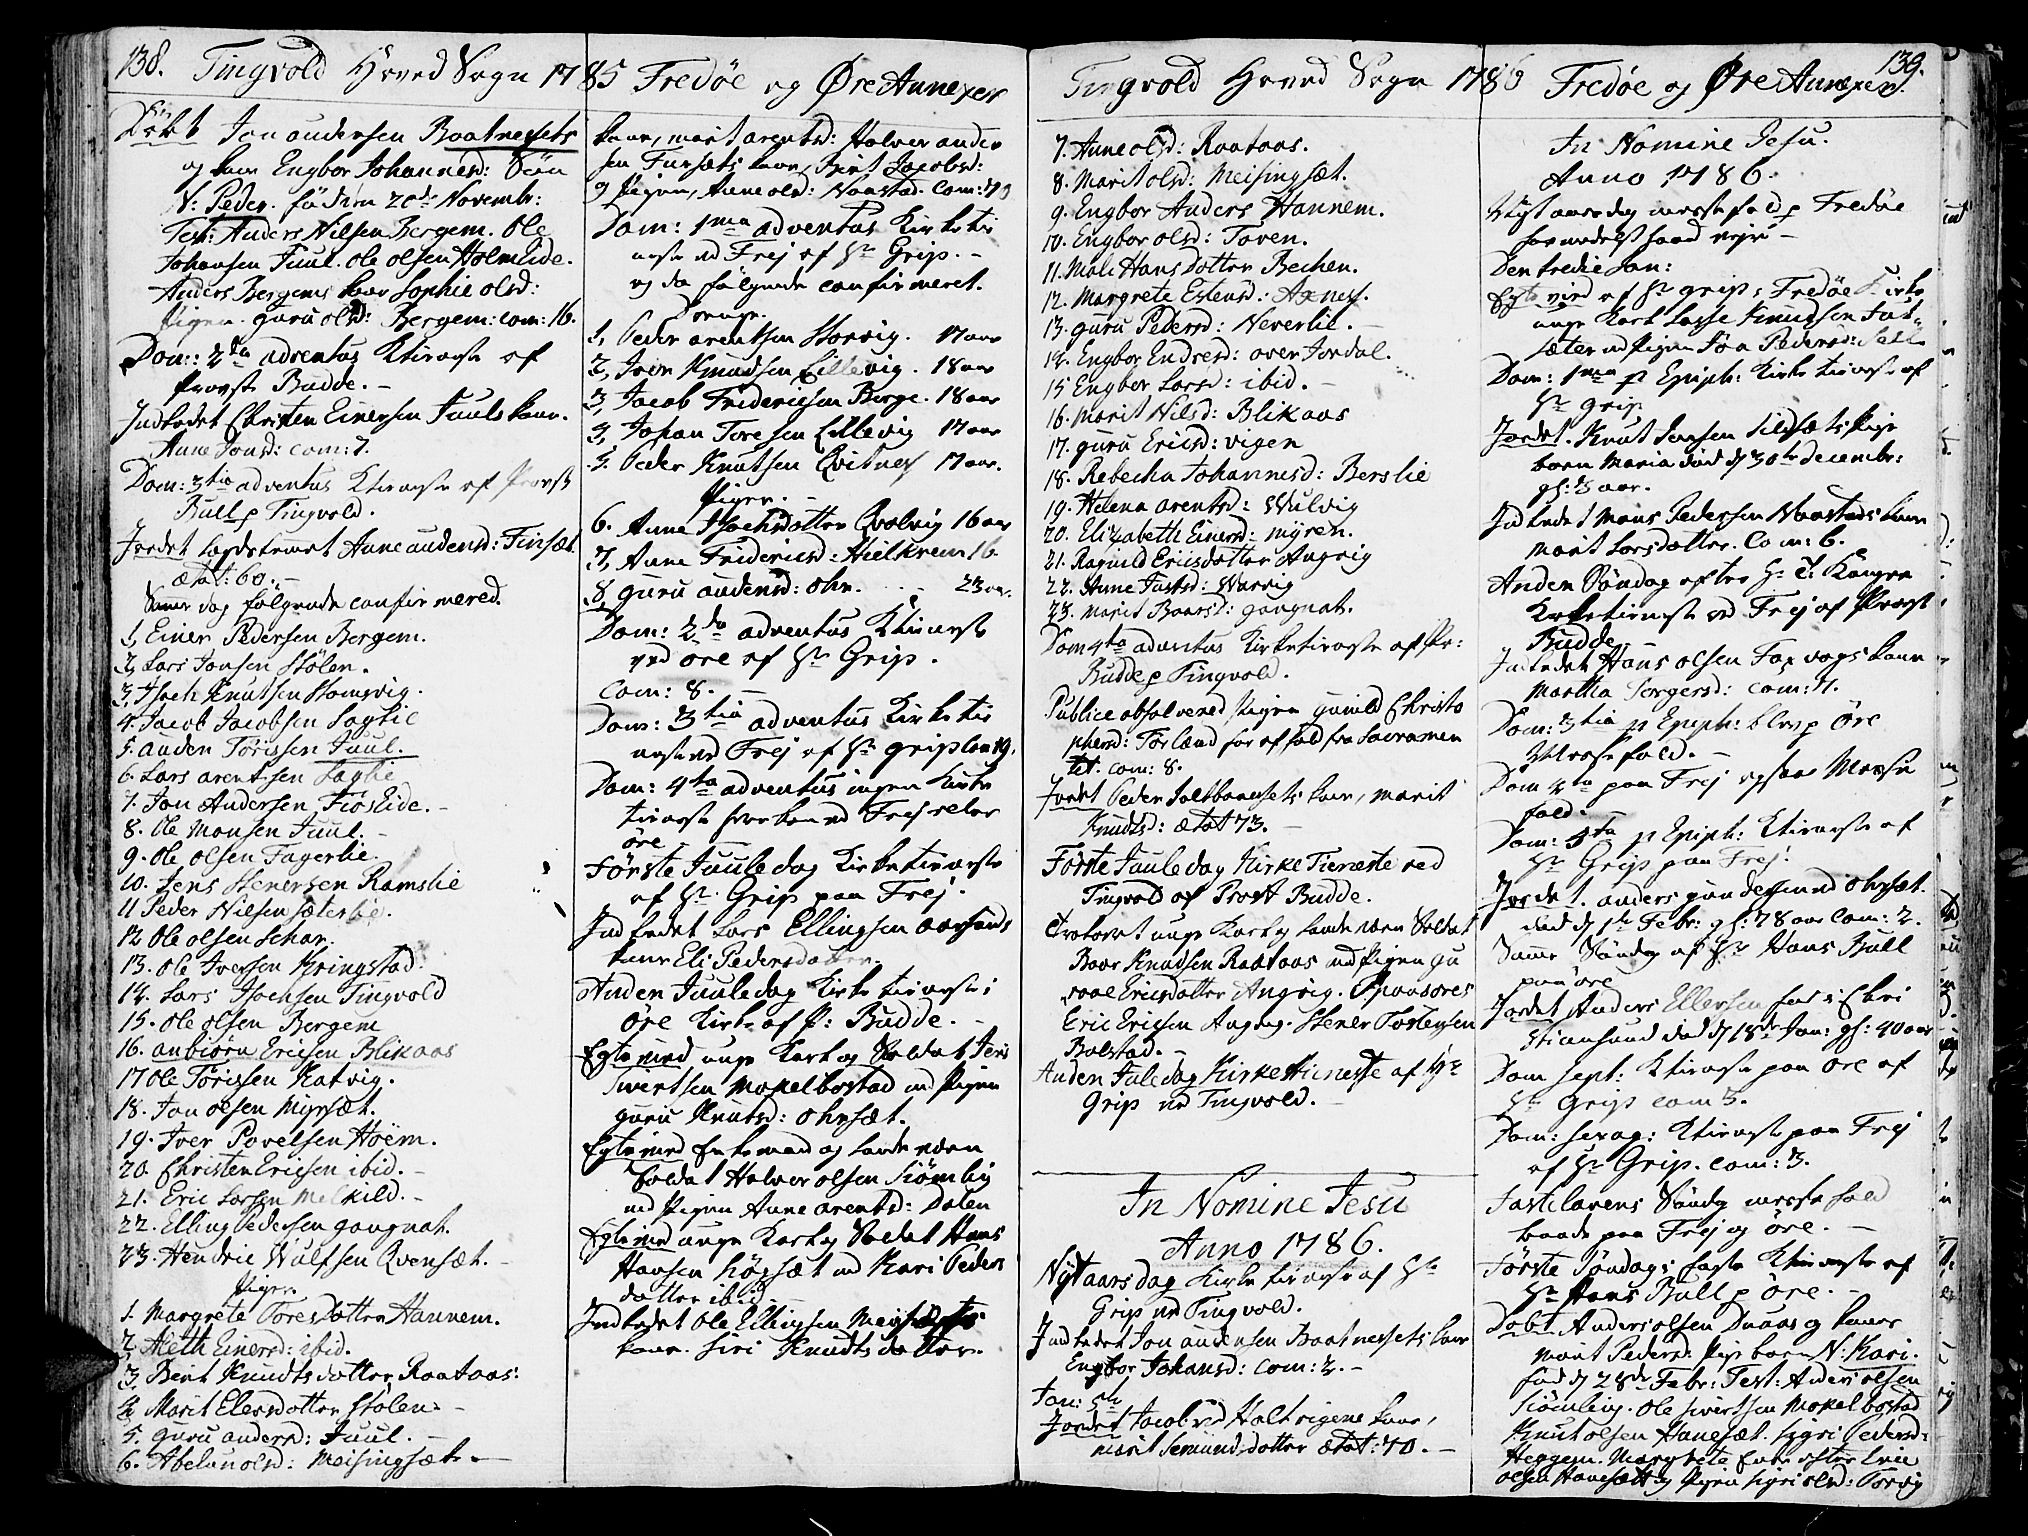 138. Tingvold Hoved Sogn 1785 Fredøe og Øre Annexer
Døbt Jon Andersen Baatnesets
og kone Engbor Johannesd: Søn
N: Peder. född den 20de Novembr:
Test: Anders Nilsen Bergem. Ole
Johansen Juul. Ole Olsen Holmlide.
Anders Bergems kone Sophie olsd:
Pigen guru olsd: Bergem: com: 16.
Dom: 2da adventus Ktieneste af
Provst Budde. -
Indledet Christen Einersen Juuls kone.
Anne Jonsd: com: 7.
Dom: 3tia adventus Ktieneste af Provst
Bull p Tingvold.
Jordet Anne audensd: Finsæt.
Ætat: 60. -
Samme dag følgende confirmered.
1, Einer Pedersen Bergem.
2, Lars Jonsen Stölen.
3, Isach Knutsen Homvig.
4. Jacob Jacobsen Saglie
5. auden Törissen Juul.
6. Lars arentsen Saglie
7. Jon Andersen Fiöslide. -
8. Ole Monsen Juul. -
9. Ole olsen Fagerlie.
10. Jens Stenersen Ramslie
11 Peder Nilsen sæterlie.
12 Ole olsen Schar.
13. Ole Iversen Kringstad.
14. Lars Isachsen Tingvold
15. Ole olsen Bergem
16. anbiörn Ericsen Blikaas
17 Ole Törissen Katvig.
18. Jon olsen Myrsæt.
19. Iver Povelsen Höem.
20. Christen Ericsen ibid. -
21. Eric Larsen Melkild. -
22. Elling Pedersen gangnat.
23. Hendric Wulfsen Qvensæt. -
Piger
1. Margrete Toresdotter Hannem.
2, Aleth Einersd: ibid.
3, Berit Knudtsdotter Raataas:
4, Marit Elersdotter Stölen. -
5. guru andersd: Juul. -
6. Abelun olsd: Meisingsæt. -
kone, marit arentsd: Halvor ander
sen Fursæts kone, Berit Jacobsd:
og Pigen, Anne olsd: Naastad. Com: 49
Dom: 1ma adventus Kirketie
neste ved Frej af Hr Grip. -
og da følgende confirmeret.
Drenge.
1, Peder arentsen Storvig. 17 aar
2, Iver Knudsen Lillevig. 18 aar
3, Jacob Fridericsen Berge. 18 aar
4, Johan Toresen Lillevig 17 aar
5. Peder Knutsen Qvitnes 17 aar.
Piger. -
6. Anne Isachsdotter Qvalvig 16 aar
7, Anne Fridericsd: Hielkrem 16.
8 guru audensd: ohr. 23 aar.
Dom: 2do adventus Ktieneste
ved øre af Hr Grip.
Com: 8. -
Dom: 3tia adventus Kirketie
neste ved Frej af Hr grip Com 19.
Dom: 4ta adventus ingen Kirke
tieneste hverken ved Frej eller
øre -
Første Juule dag Kirketieneste
af Hr. Grip paa Frej.
Indledet Lars Ellingsen aarsunds
kone Eli Pedersdotter.
Anden Juule dag Kirketieneste i
Øre Kirke af P: Budde. -
Egte vied unge Karl og Soldat Jens
Sivertsen Mokelbostad med Pigen
guru Knutsd: ohrsæt.
Egtevied Enkemand og landevern
Soldat Halvor olsen Siömlig
med Pigen Anne arentsd: Dalen
Egte vied unge Karl og Soldat Hans
Hansen högsæt med Kari Peders
dotter ibid.
Indledet Ole Ellingsen
kone. Siri Knudtsdotter.
Tingvold Hoved Sogn 1786 Fredøe og Øre Annexer. 139.
7. Anne olsd: Raataas.
8. Marit olsd: Meisingsæt.
9. Engbor Anders Hannem.
10. Engbor olsd: Toven.
11. Mali Hans Dotter Bechen.
12. Margrete Estensd: Axnes.
13. guru Pedersd: Neverlie. -
14. Engbor Endresd: over Jordal.
15 Engbor Larsd: ibid. -
16. Marit Nilsd: Blikaas
17. guru Ericsd: vigen
18. Rebecha Johannesd: Berslie
19. Helena arentsd: Wulvig
20. Elizabeth Einersd: myren.
21. Ragnild Ericsdotter Angvig
22. Anne Justsd: Warvig
23. Marit Baarsd: gangnat.
Dom 4ta adventus Kirketieneste af Pr:
Budde p Tingvold.
Publice absolvered Pigen gunild Christo
phersd: for
tet. com: 8.
Jordet Peder Saltbaansets kone, marit
Knudtsd: Ætat 73. -
Första Juule dag Kirke Tieneste ved
Tingvold af Prost Budde.
unge Karl og landevern Soldat
Baar Knudsen Raataas med Pigen gu
roae Ericsdotter Angvig. Sponsores
Eric Ericsen Angvig. Stener Torlevsen
Bolstad. -
Anden Jule dag Kirke tieneste af Hr
Grip ved Tingvold. -
In Nomine Jesu
Anno 1786.
Nytaars dag Kirketieneste af Hr
Grip ved Tingvold.
Indledet Jon audensen Baatnessets kone
Engbor Johansd: Com: 2. -
Jan: 5te
Jordet Jacob kone,
marit Semundsdotter ætat: 70. -
In Nomine Jesu.
Anno 1786.
Nyt aars dag messefald p Fredøe
formedelst haard vejr -
Den tredie Jan:
Egte vied af Hr grip i Fredøe Kirke
unge Karl Lasse Knudsen
sæter med Pigen Pedersd:
Dom: 1ma p Epiph: Kirketieneste af
Hr grip
Jordet. Knut Jensen Pige
barn Maria död d 30te Decembr:
gl: 3 aar.
Indledet Mons Pedersen Naastads kone
marit Larsdotter. Com: 6.
Anden Söndag efter H: 3 Konger
Kirketieneste ved Frej af Provst
Budde
Indledet Hans olsen Foxvogs kone
Martha com: 7.
Dom: 3tia p Epiph: blev p öre
Messefald. -
Dom 4ta paa Frej ogsaa Messe
fald.
Dom: 5ta p Epiph: Ktieneste af
Hr Grip paa Frej.
Jordet. anders ohrsæt.
död d 1te Febr: gl: 78 aar Com: 2.
Samme Söndag af Hr Hans Bull
paa öre
Jordet Anders Ellersen född i Chri
stiansund död d 18de Jan: gl: 40 aar
Dom sept: Ktieneste paa öre af
Hr Grip com 5.
Dom: sexag: Ktieneste paa Frej
af Hr Grip. com: 3.
Fastelavens Söndag messefald
baade paa Frej og öre. -
Förste Söndag i faste Ktieneste af
Hr Hans Bull p öre. -
Döbt Anders olsen Duaas og kones
marit Pedersd: Pige barn N: Kari.
föd d 28de Febr: Test: Anders olsen
Siömling. Ole Sivertsen Mokelbostad
Knut olsen Hanesæt. Sigri Pedersd:
Heggem. Margrete Enke efter Eric
olsen Hanesæt og Pigen Sigri olsd: Torvig